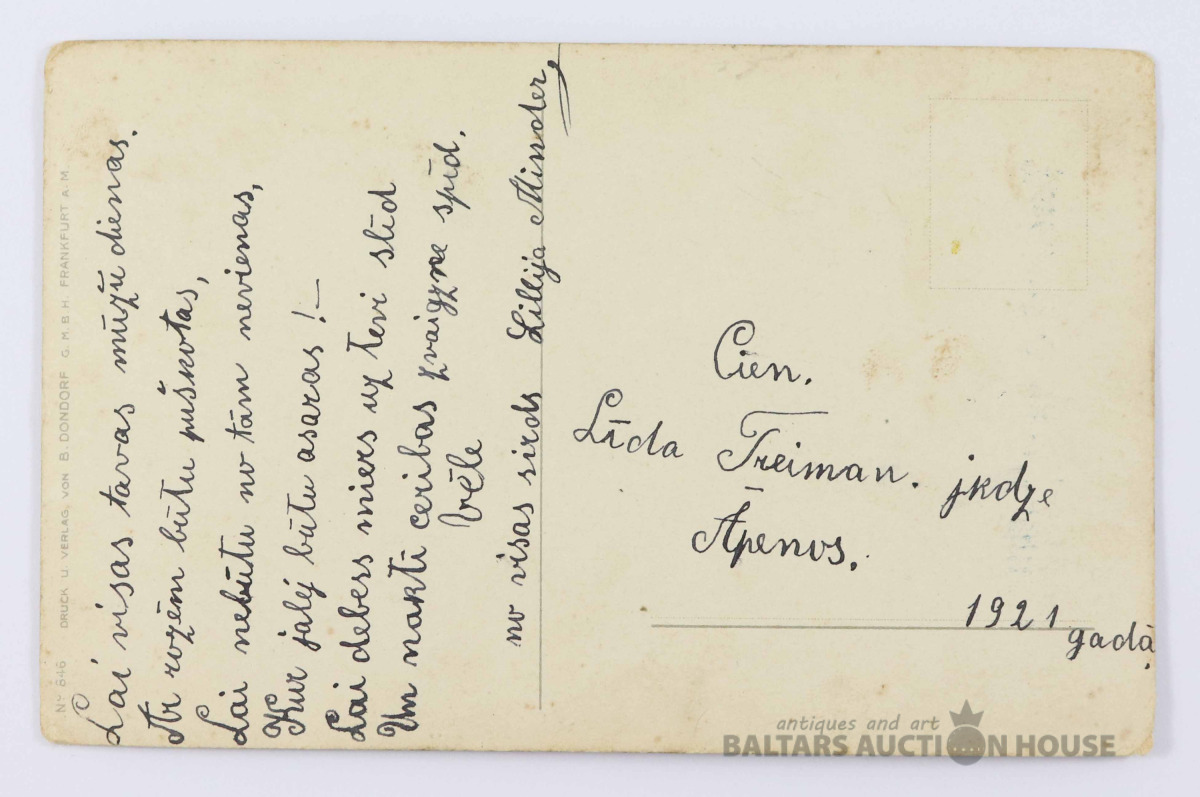 Nº 646 DRUCK U. VERLAG VON B. DONDORF G. M. B. H. FRANKFURT A. M.
Lai visas tavas mužu dienas.
Ar rozēm būtu puškotas,
Lai nebūtu no tām nevienas,
Kur jalej būtu asaras! —
Lai debess miers uz tevi slīd
Un naktī ceribas zvaigzne spīd.
Vēle
no visas sirds Lillija Minder,
Cien.
Līda Treiman. jkdze
Āpenos.
1921 gadā.
antiques and art
BALTARS AUCTION HOUSE